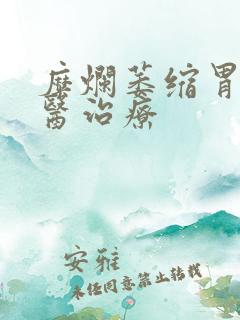 糜爛萎缩胃
醫治療
安雅
未经同意禁止转载